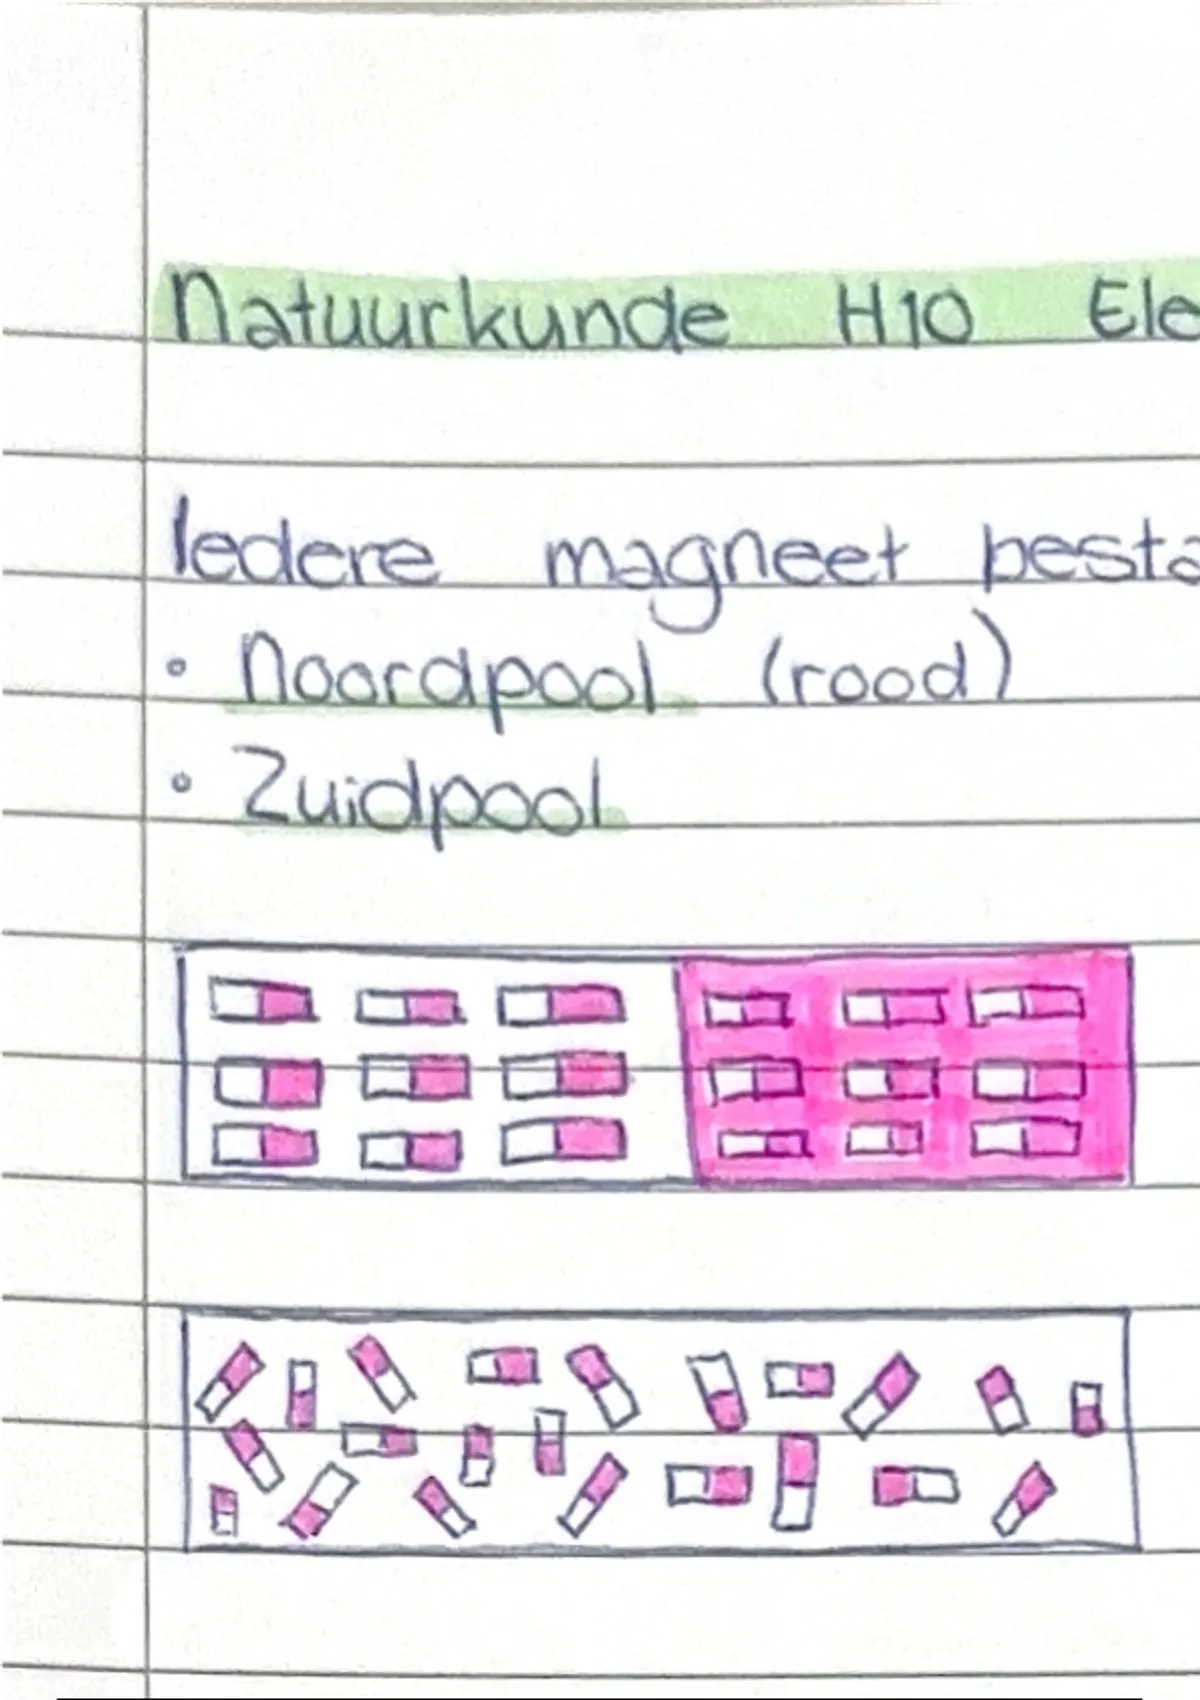 Natuurkunde H10 Ele
Iedere magneet besta
• Noordpool (rood)
• Zuidpool